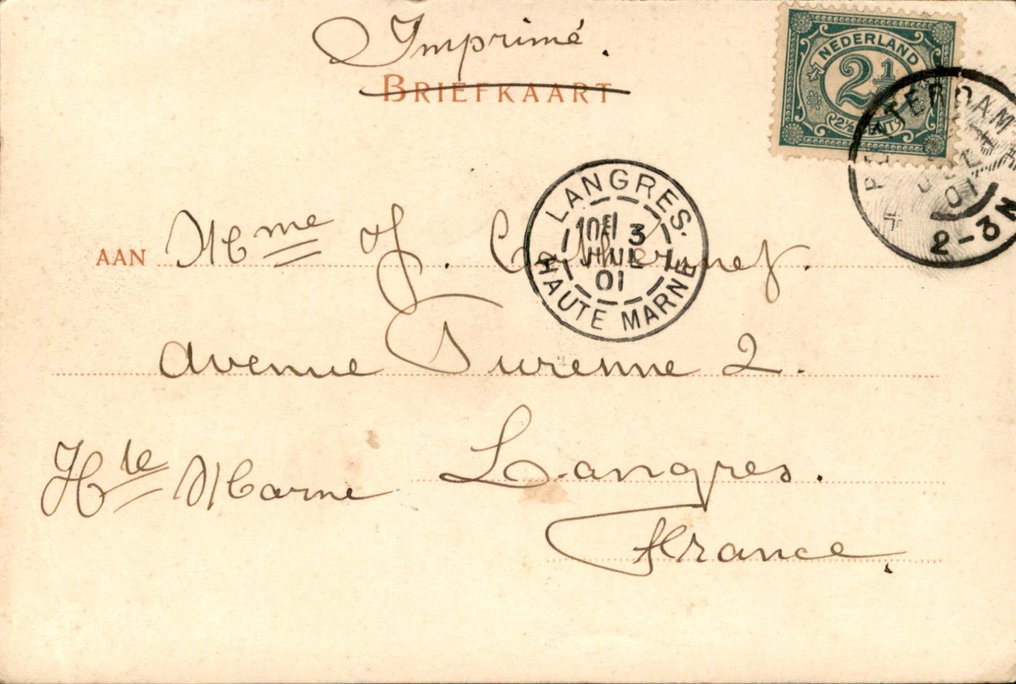 Imprimé.
BRIEFKAART
NEDERLAND
2½
2½ CENT
ROTTERDAM
01
2-3N
LANGRES.
10E 3
JUIL
01
HAUTE MARNE
AAN Mme J.
avenue Turenne 2.
Hte Marne Langres.
France.